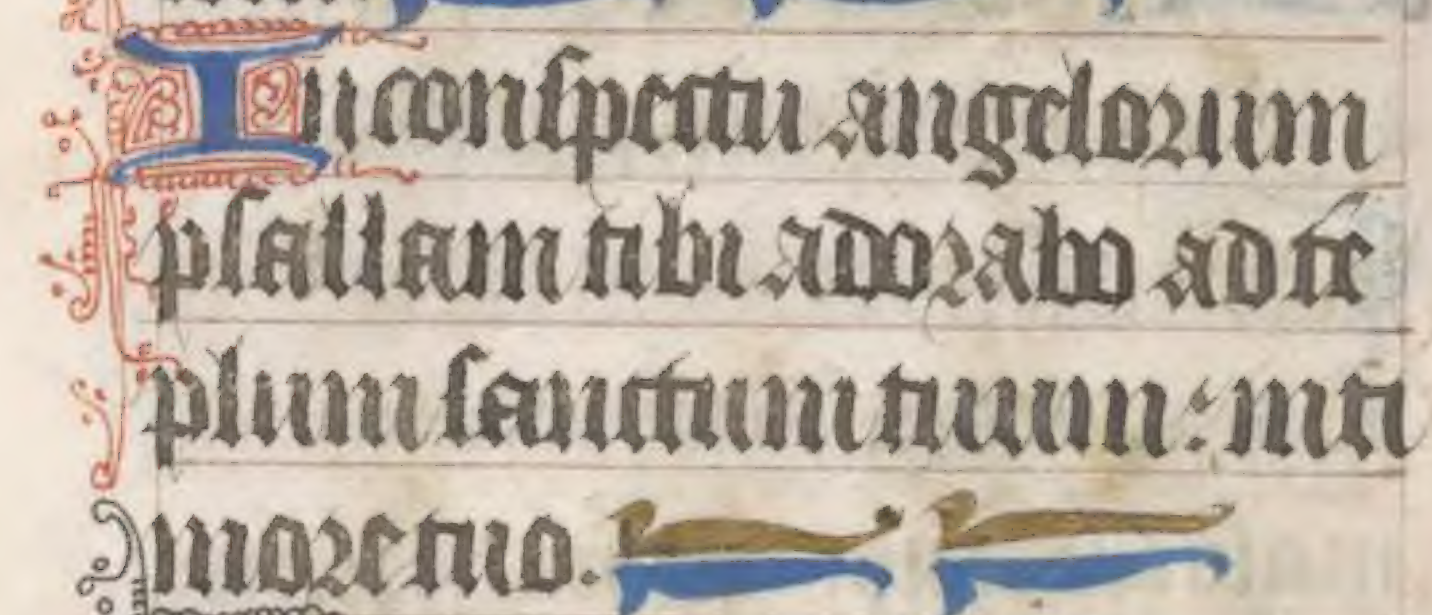 In conspectu angelorum
psallam tibi adorabo ad tē
plum sanctum tuum: in ti
more tuo.